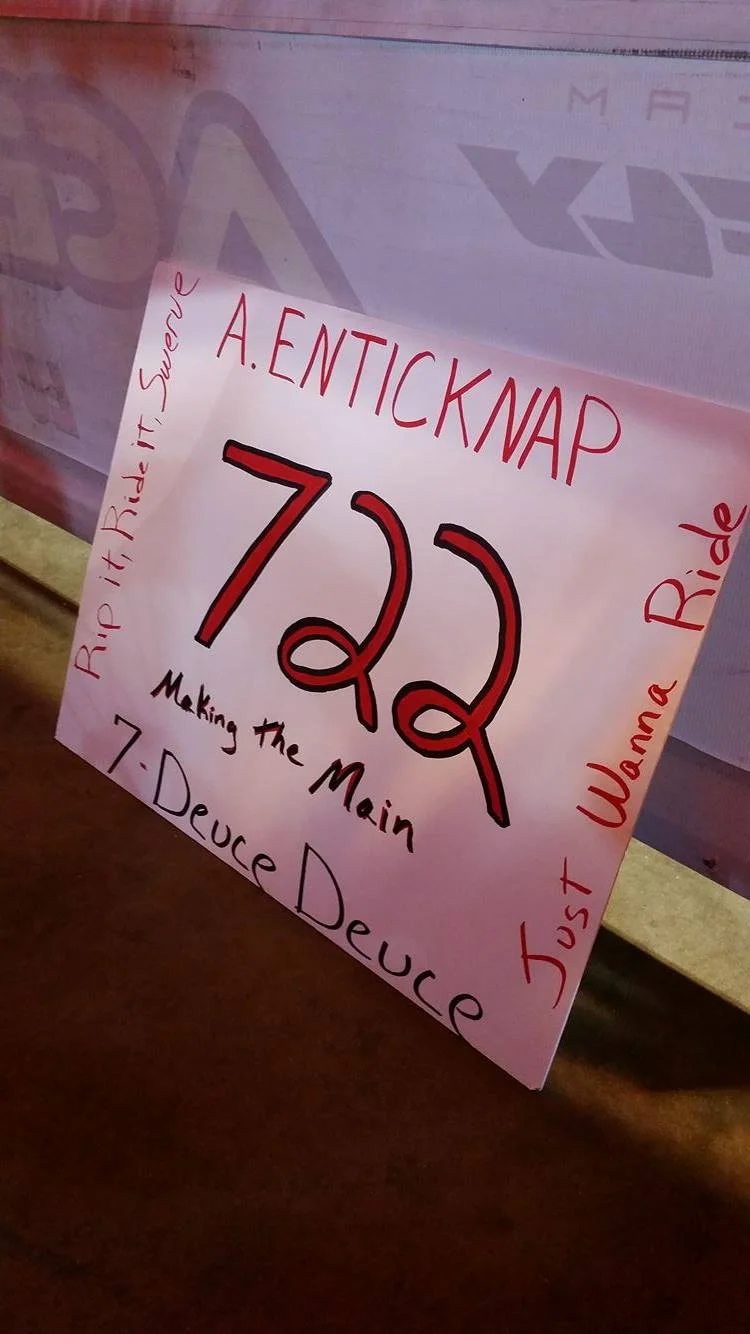 A. ENTICKNAP
722
Making the Main
7-Deuce Deuce
Rip it, Ride it, Swerve
Just Wanna Ride